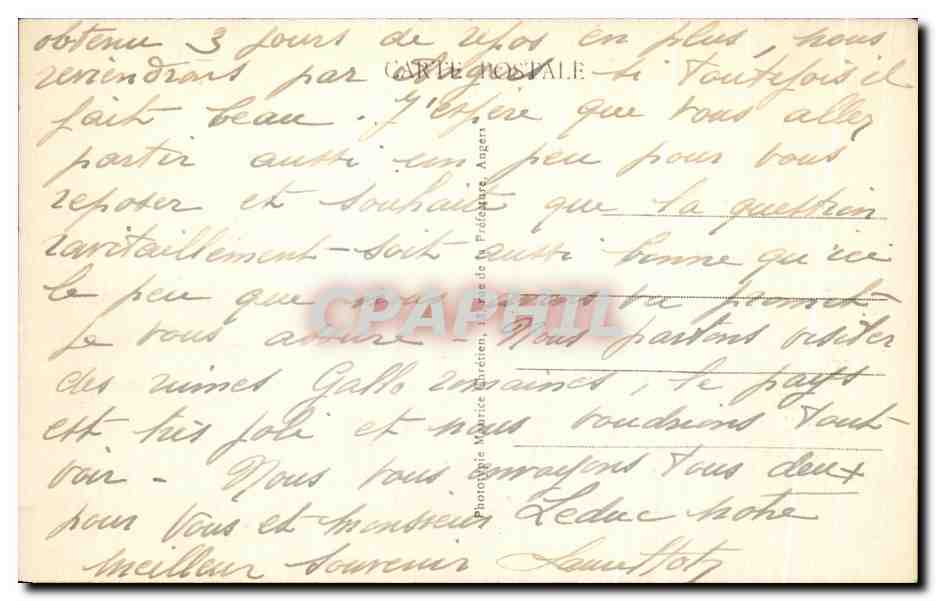 obtenu 3 jours de repos en plus, nous
CARTE POSTALE
reviendrons par si toutefois il
fait beau. J'espère que vous allez
partir aussi un peu pour vous
reposer et souhaite que la question
ravitaillement soit aussi bonne qu'ici
le peu que nous avons vu promet
je vous assure - Nous partons visiter
des ruines Gallo romaines, le pays
est très joli et nous voudrions tout
voir - Nous vous envoyons tous deux
pour Vous et monsieur Leduc notre
meilleur souvenir
Phototypie Maurice Chrétien, rue de la Préfecture, Angers
CPAPHIL